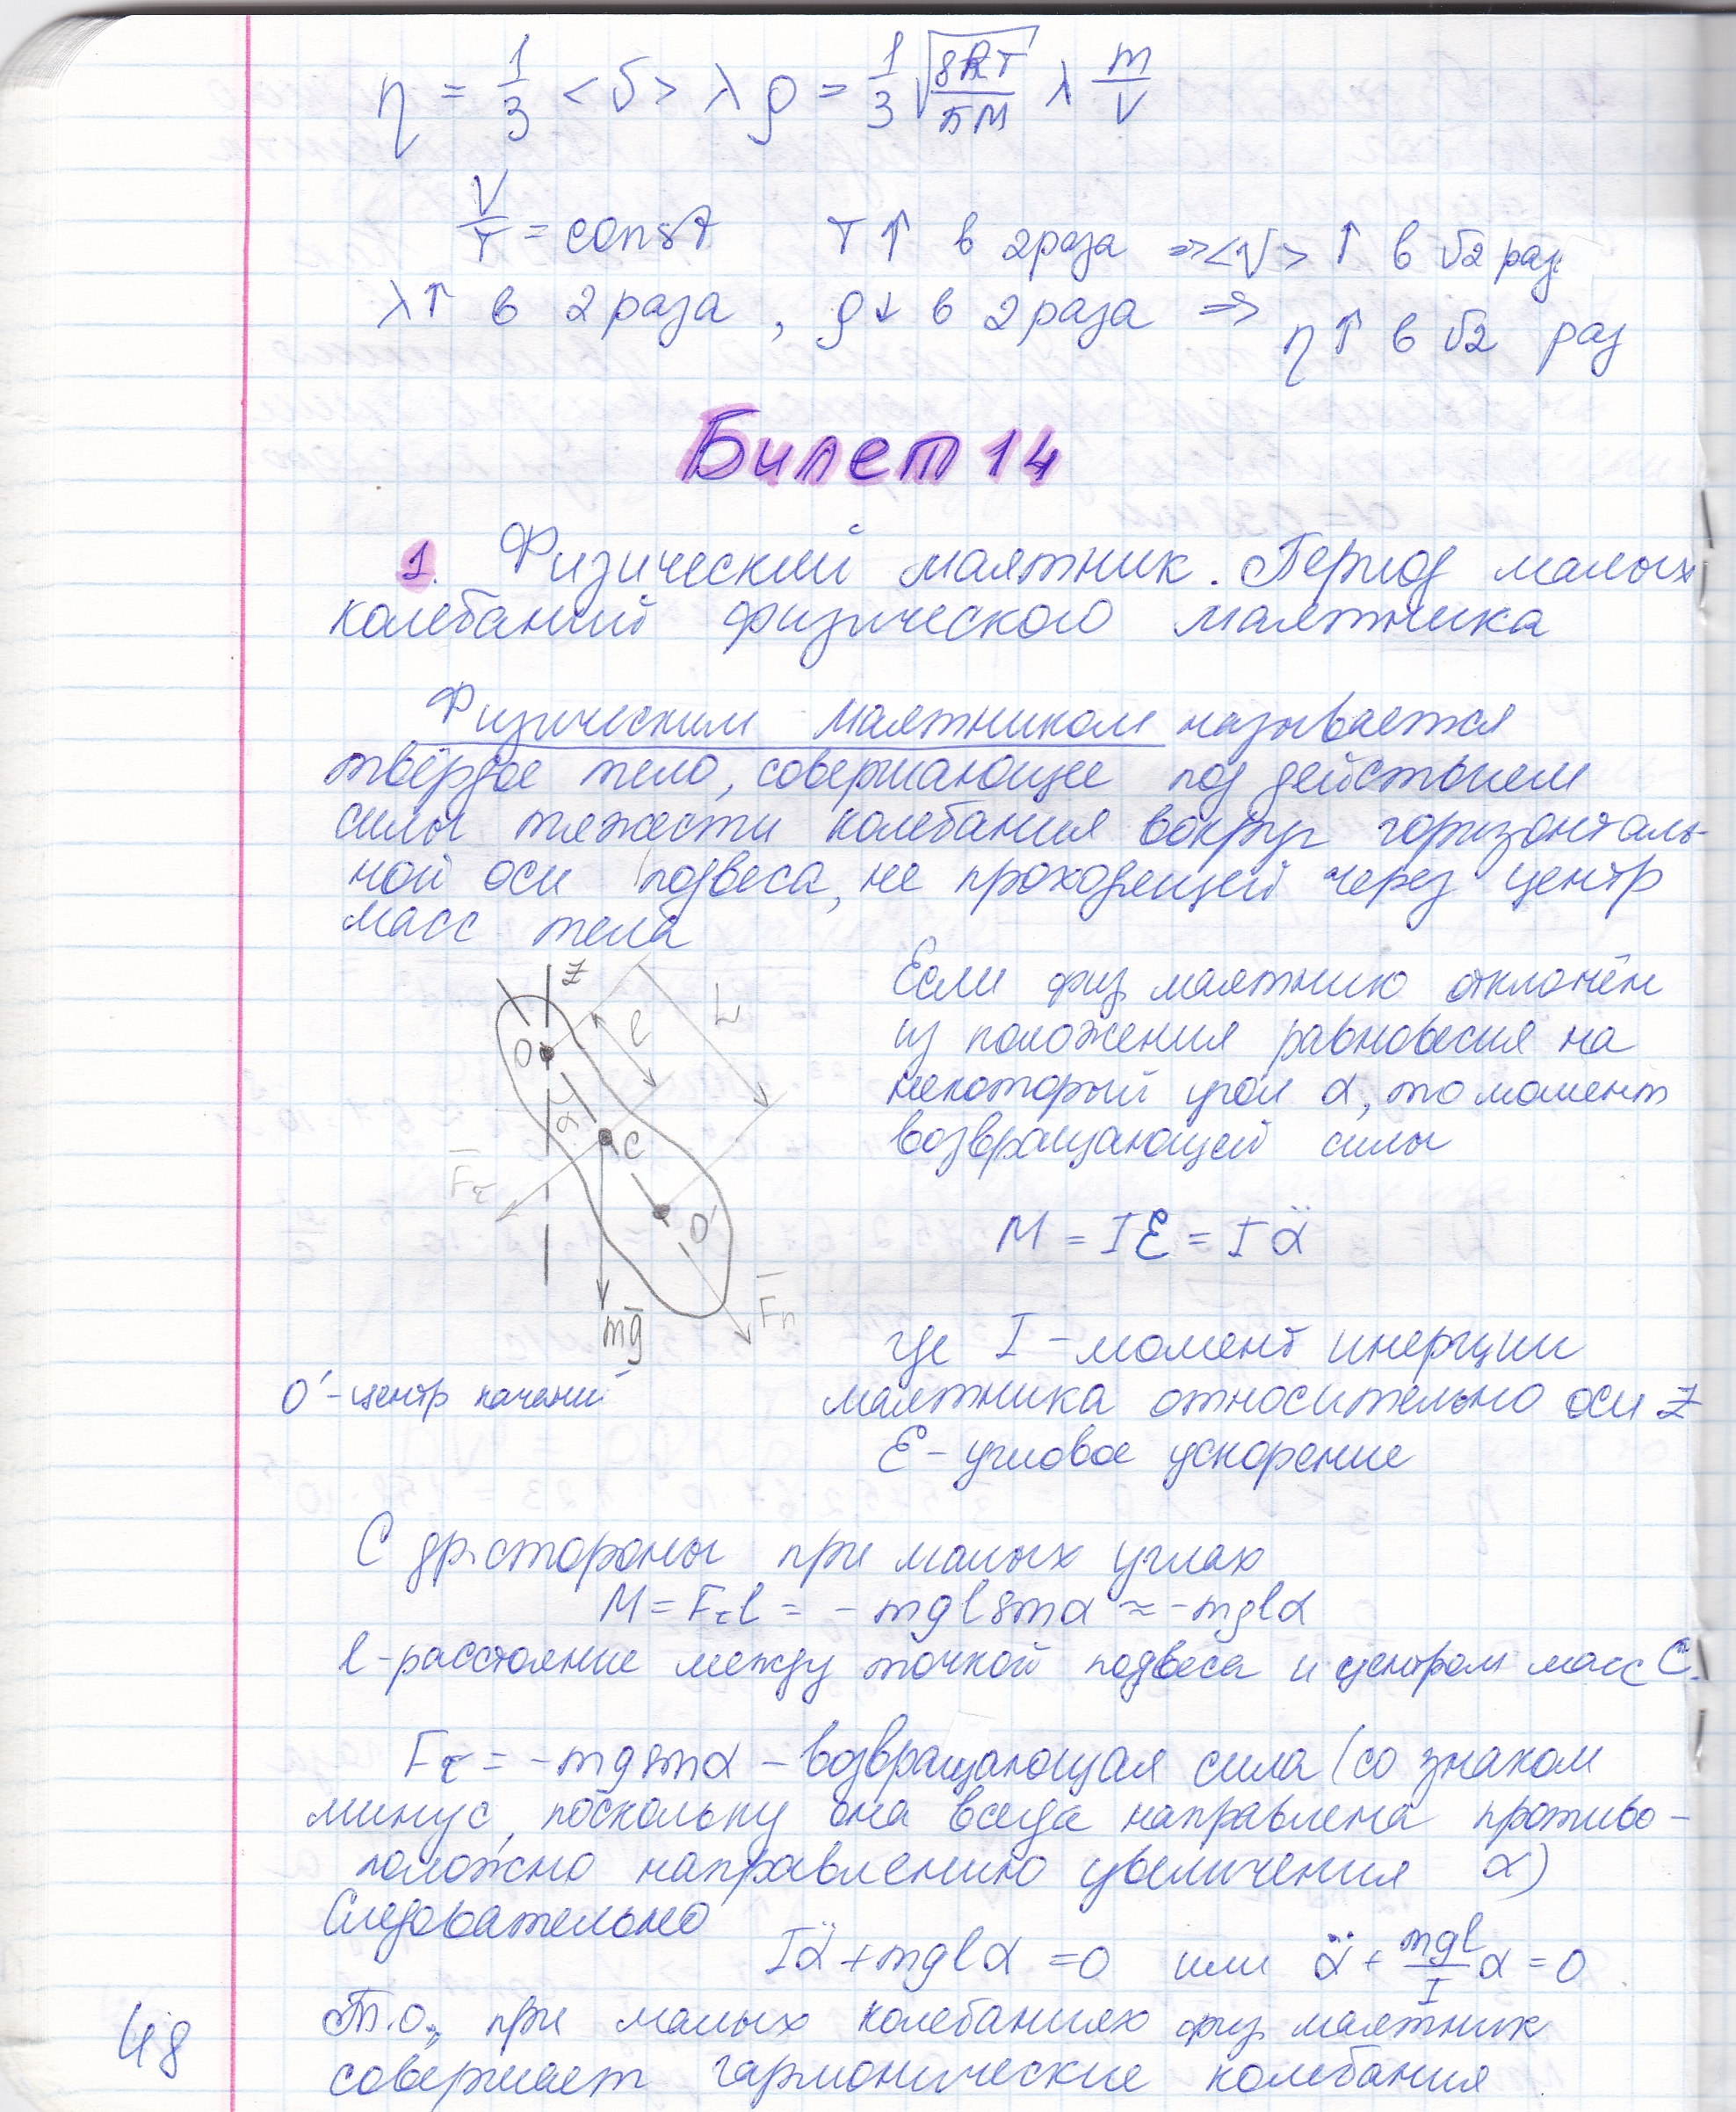 η = 1/3 <υ> λ ρ = 1/3 √(8RT/πM) λ m/V
V/T = const T↑ в 2 раза => <V> ↑ в √2 раз
λ↑ в 2 раза, ρ↓ в 2 раза => η↑ в √2 раз
Билет 14
1. Физический маятник. Период малых
колебаний физического маятника
Физическим маятником называется
твёрдое тело, совершающее под действием
силы тяжести колебания вокруг горизонталь-
ной оси подвеса, не проходящей через центр
масс тела
z
O
l
L
α
C
F̄τ
O'
F̄n
mḡ
O' - центр качаний
Если физ маятник отклонён
из положения равновесия на
некоторый угол α, то момент
возвращающей силы
M = Iε = Iα̈
где I - момент инерции
маятника относительно оси z
ε - угловое ускорение
С др. стороны при малых углах
M = Fτl = -mgl sinα ≈ -mglα
l - расстояние между точкой подвеса и центром масс C.
Fτ = -mg sinα - возвращающая сила (со знаком
минус, поскольку она всегда направлена противо-
положно направлению увеличения α)
Следовательно
Iα̈ + mglα = 0 или α̈ + mgl/I α = 0
Т.о., при малых колебаниях физ маятник
совершает гармонические колебания
48